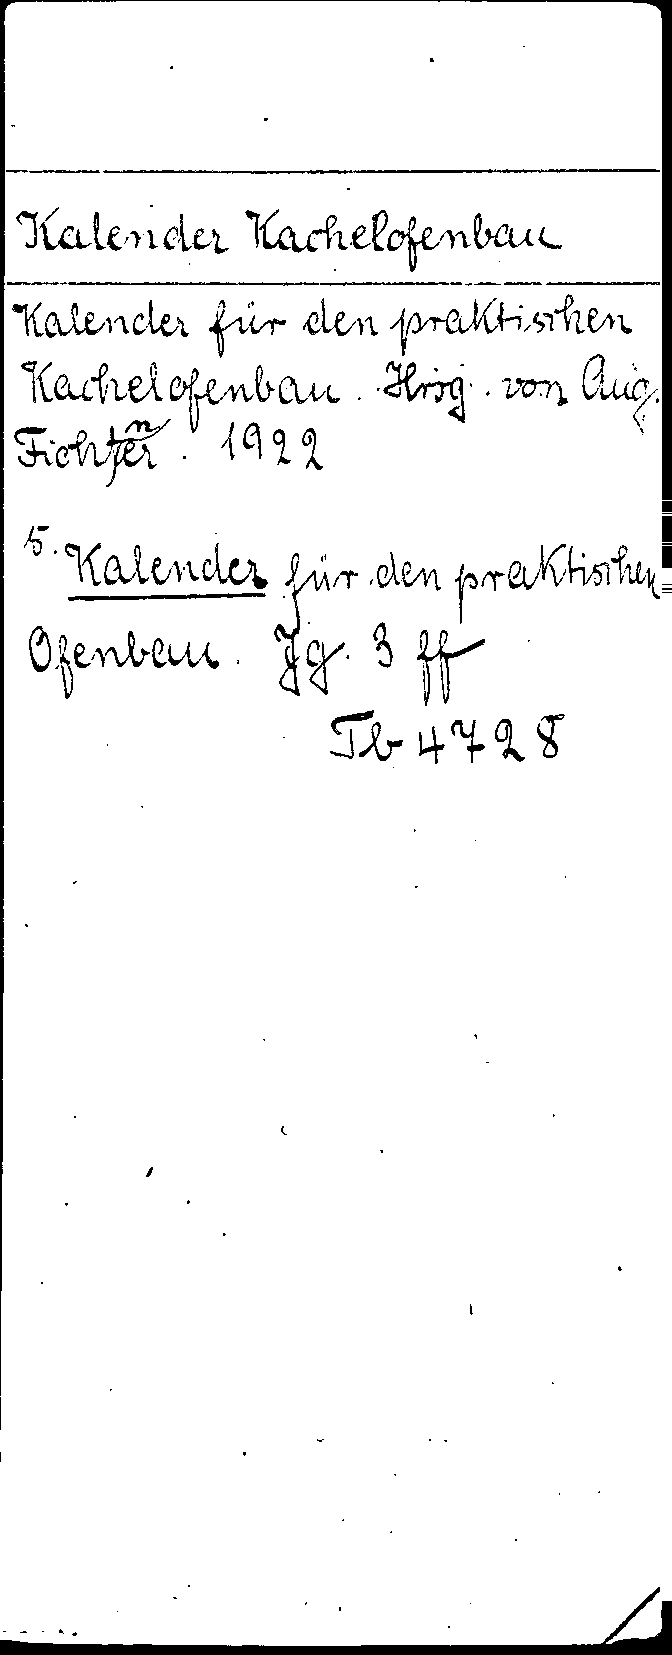 Kalender Kachelofenbau
Kalender für den praktischen
Kachelofenbau. Hrsg. von Aug.
1922
s. Kalender für den praktischen
Ofenbau. Jg. 3 ff
Tb 4728